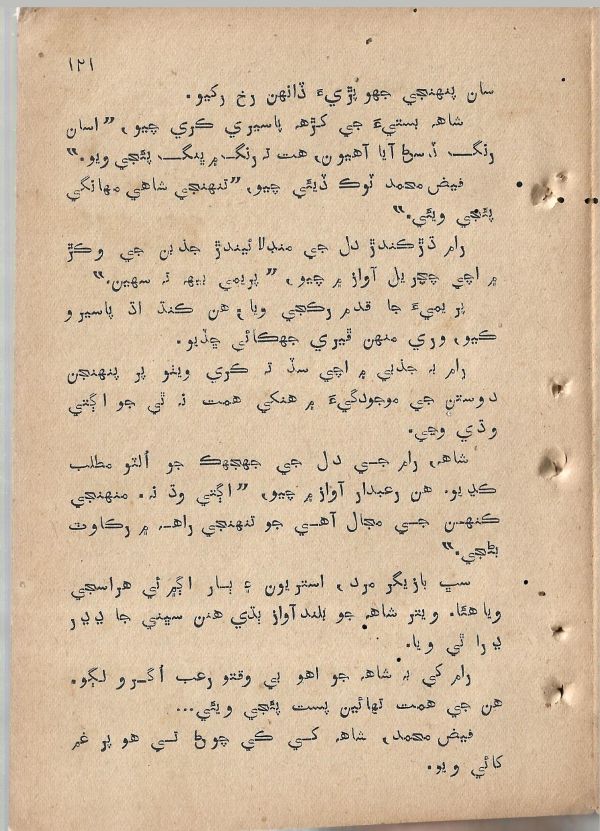 ١٢١
سان پنهنجي جهوپڙيءَ ڏانهن رخ رکيو.
شاهه بستيءَ جي کڙهه پاسيري ڪري چيو، ”اسان
رنگ ڏسڻ آيا آهيون، هت ته رنگ ۾ ڀنگ پئجي ويو.“
فيض محمد ٽوڪ ڏيئي چيو، ”تنهنجي شاهي مهانگي
پئجي ويئي.“
رام ڌڙڪندڙ دل جي منڊلائيندڙ جذبن جي وڪڙ
۾ اچي چچريل آواز ۾ چيو، ”پريمي بيهه ته سهين.“
پريميءَ جا قدم رڪجي ويا، هن ڪنڌ اڌ پاسيرو
ڪيو، وري منهن ڦيري جهڪائي ڇڏيو.
رام به جذبي ۾ اچي سڏ ته ڪري ويٺو پر پنهنجن
دوستن جي موجودگيءَ ۾ هنکي همت نه ٿي جو اڳتي
وڌي وڃي.
شاهه، رام جي دل جي جهجهڪ جو اُلٽو مطلب
ڪڍيو. هن رعبدار آواز ۾ چيو، ”اڳتي وڌ نه. منهنجي
ڪنهن جي مجال آهي جو تنهنجي راهه ۾ رڪاوٽ
بڻجي.“
سڀ بازيگر مرد، استريون ۽ ٻار اڳ ۾ ئي هراسجي
ويا هئا. ويتر شاهه جو بلند آواز ٻڌي هنن سڀني جا ڍڍر
ڍرا ٿي ويا.
رام کي به شاهه جو اهو بي وقتو رعب اُگرو لڳو.
هن جي همت تهائين پست پئجي ويئي...
فيض محمد، شاهه کي ڪي چوڻ تي هو پر غم
کائي ويو.